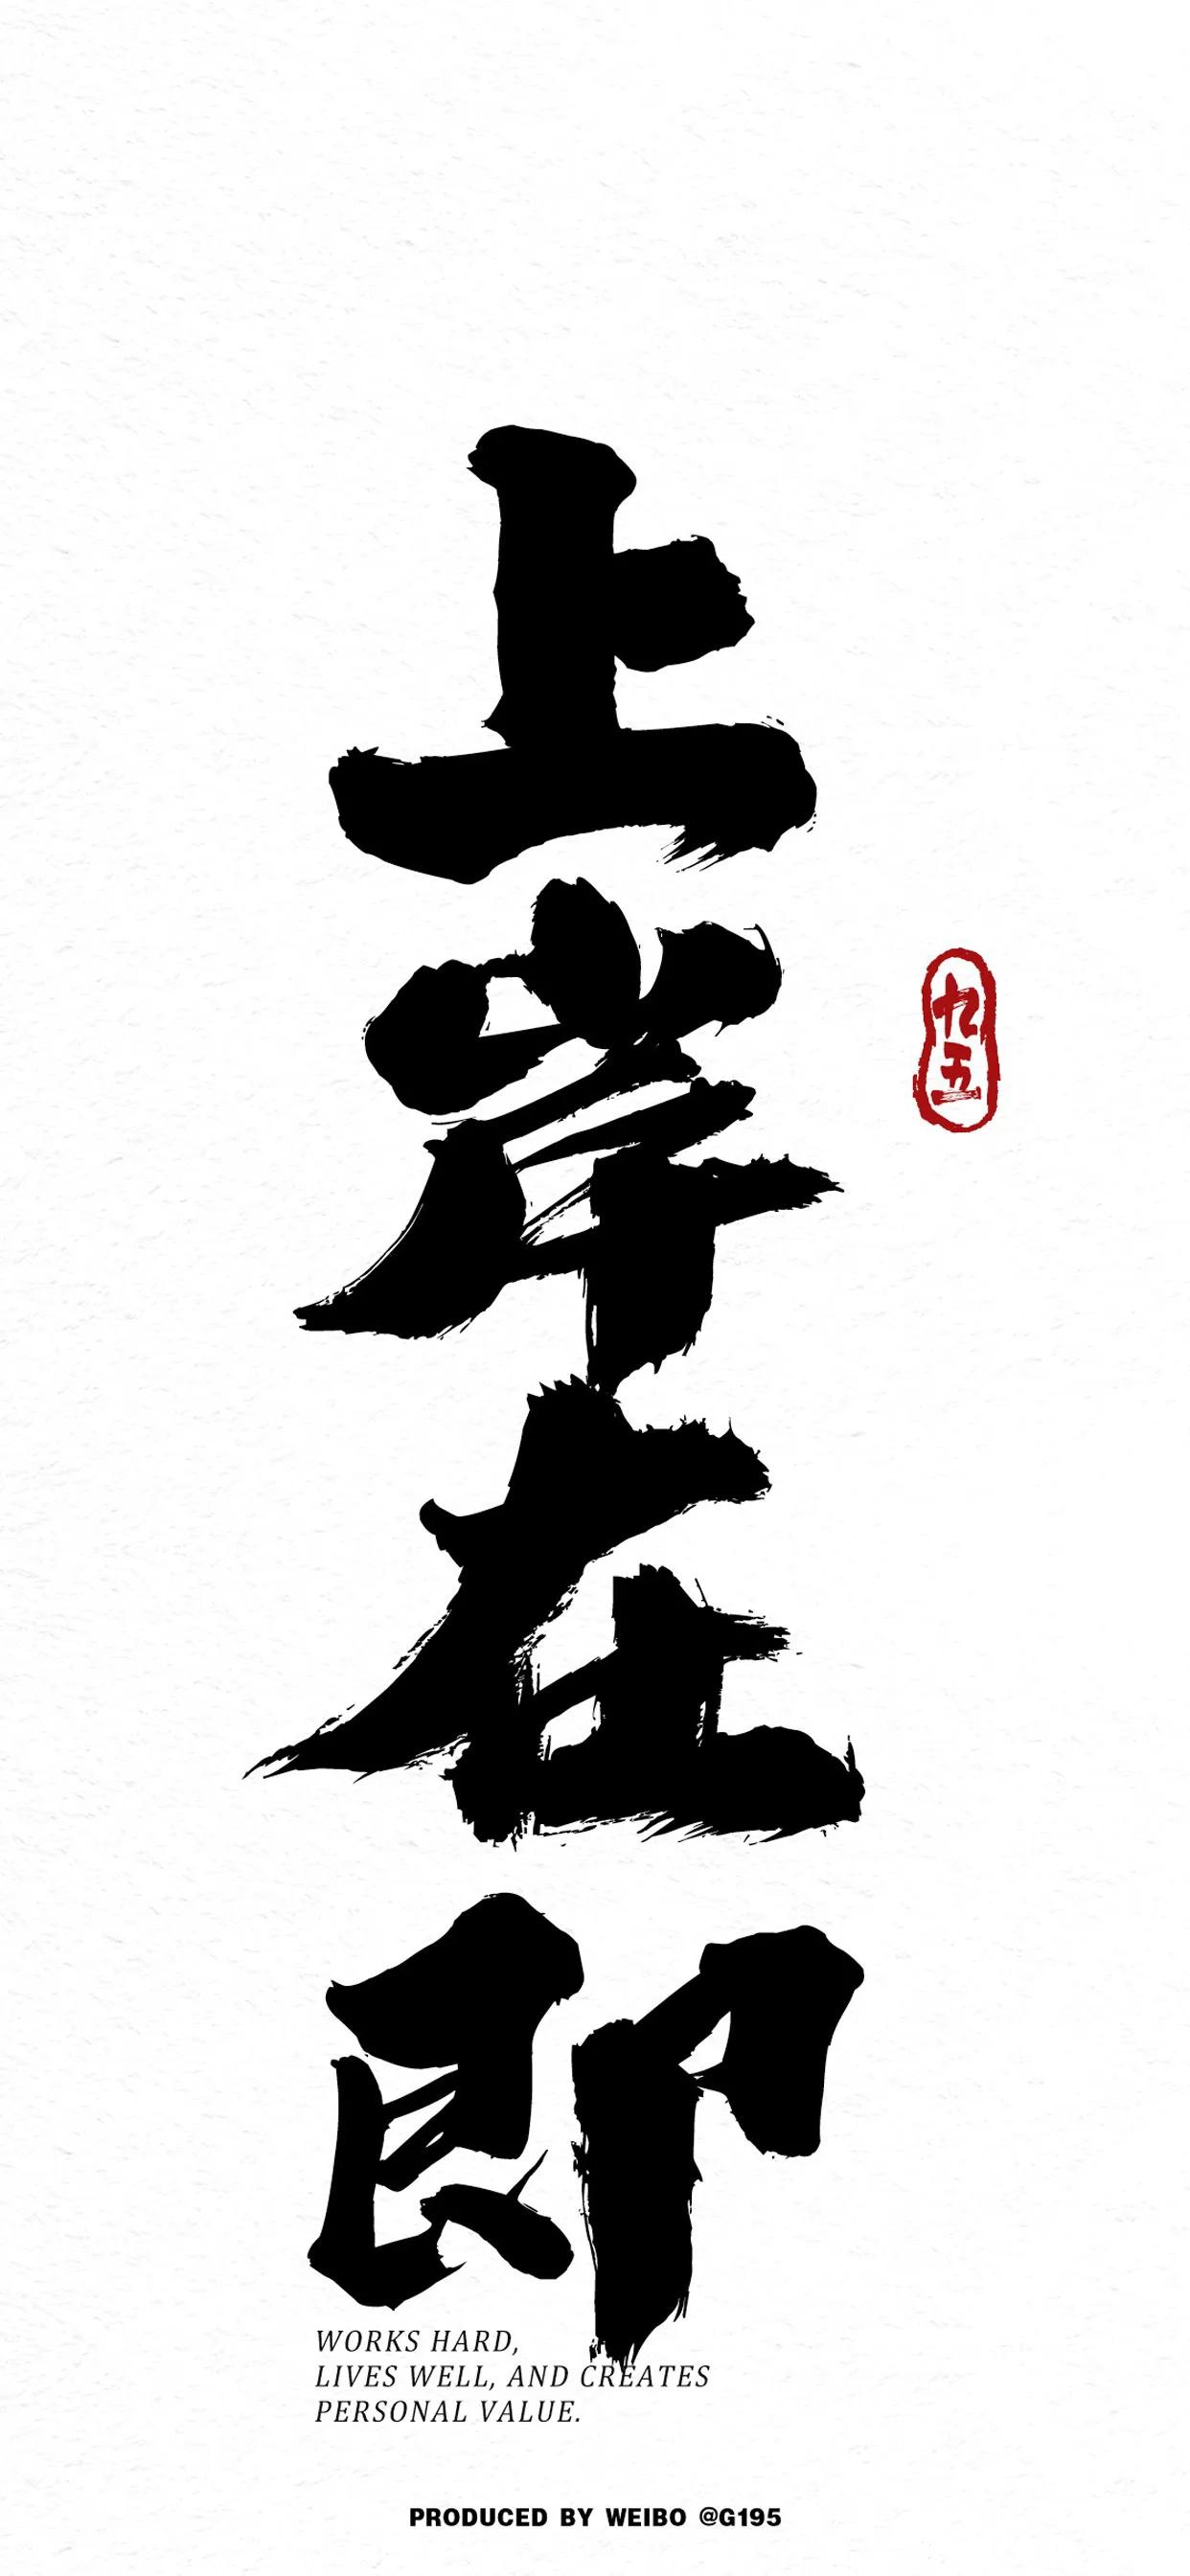 上岸在即
九五
WORKS HARD,
LIVES WELL, AND CREATES
PERSONAL VALUE.
PRODUCED BY WEIBO @G195